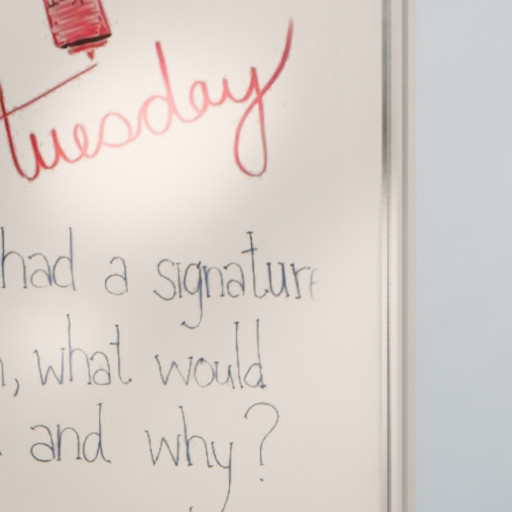 tuesday
had a signature
, what would
and why?